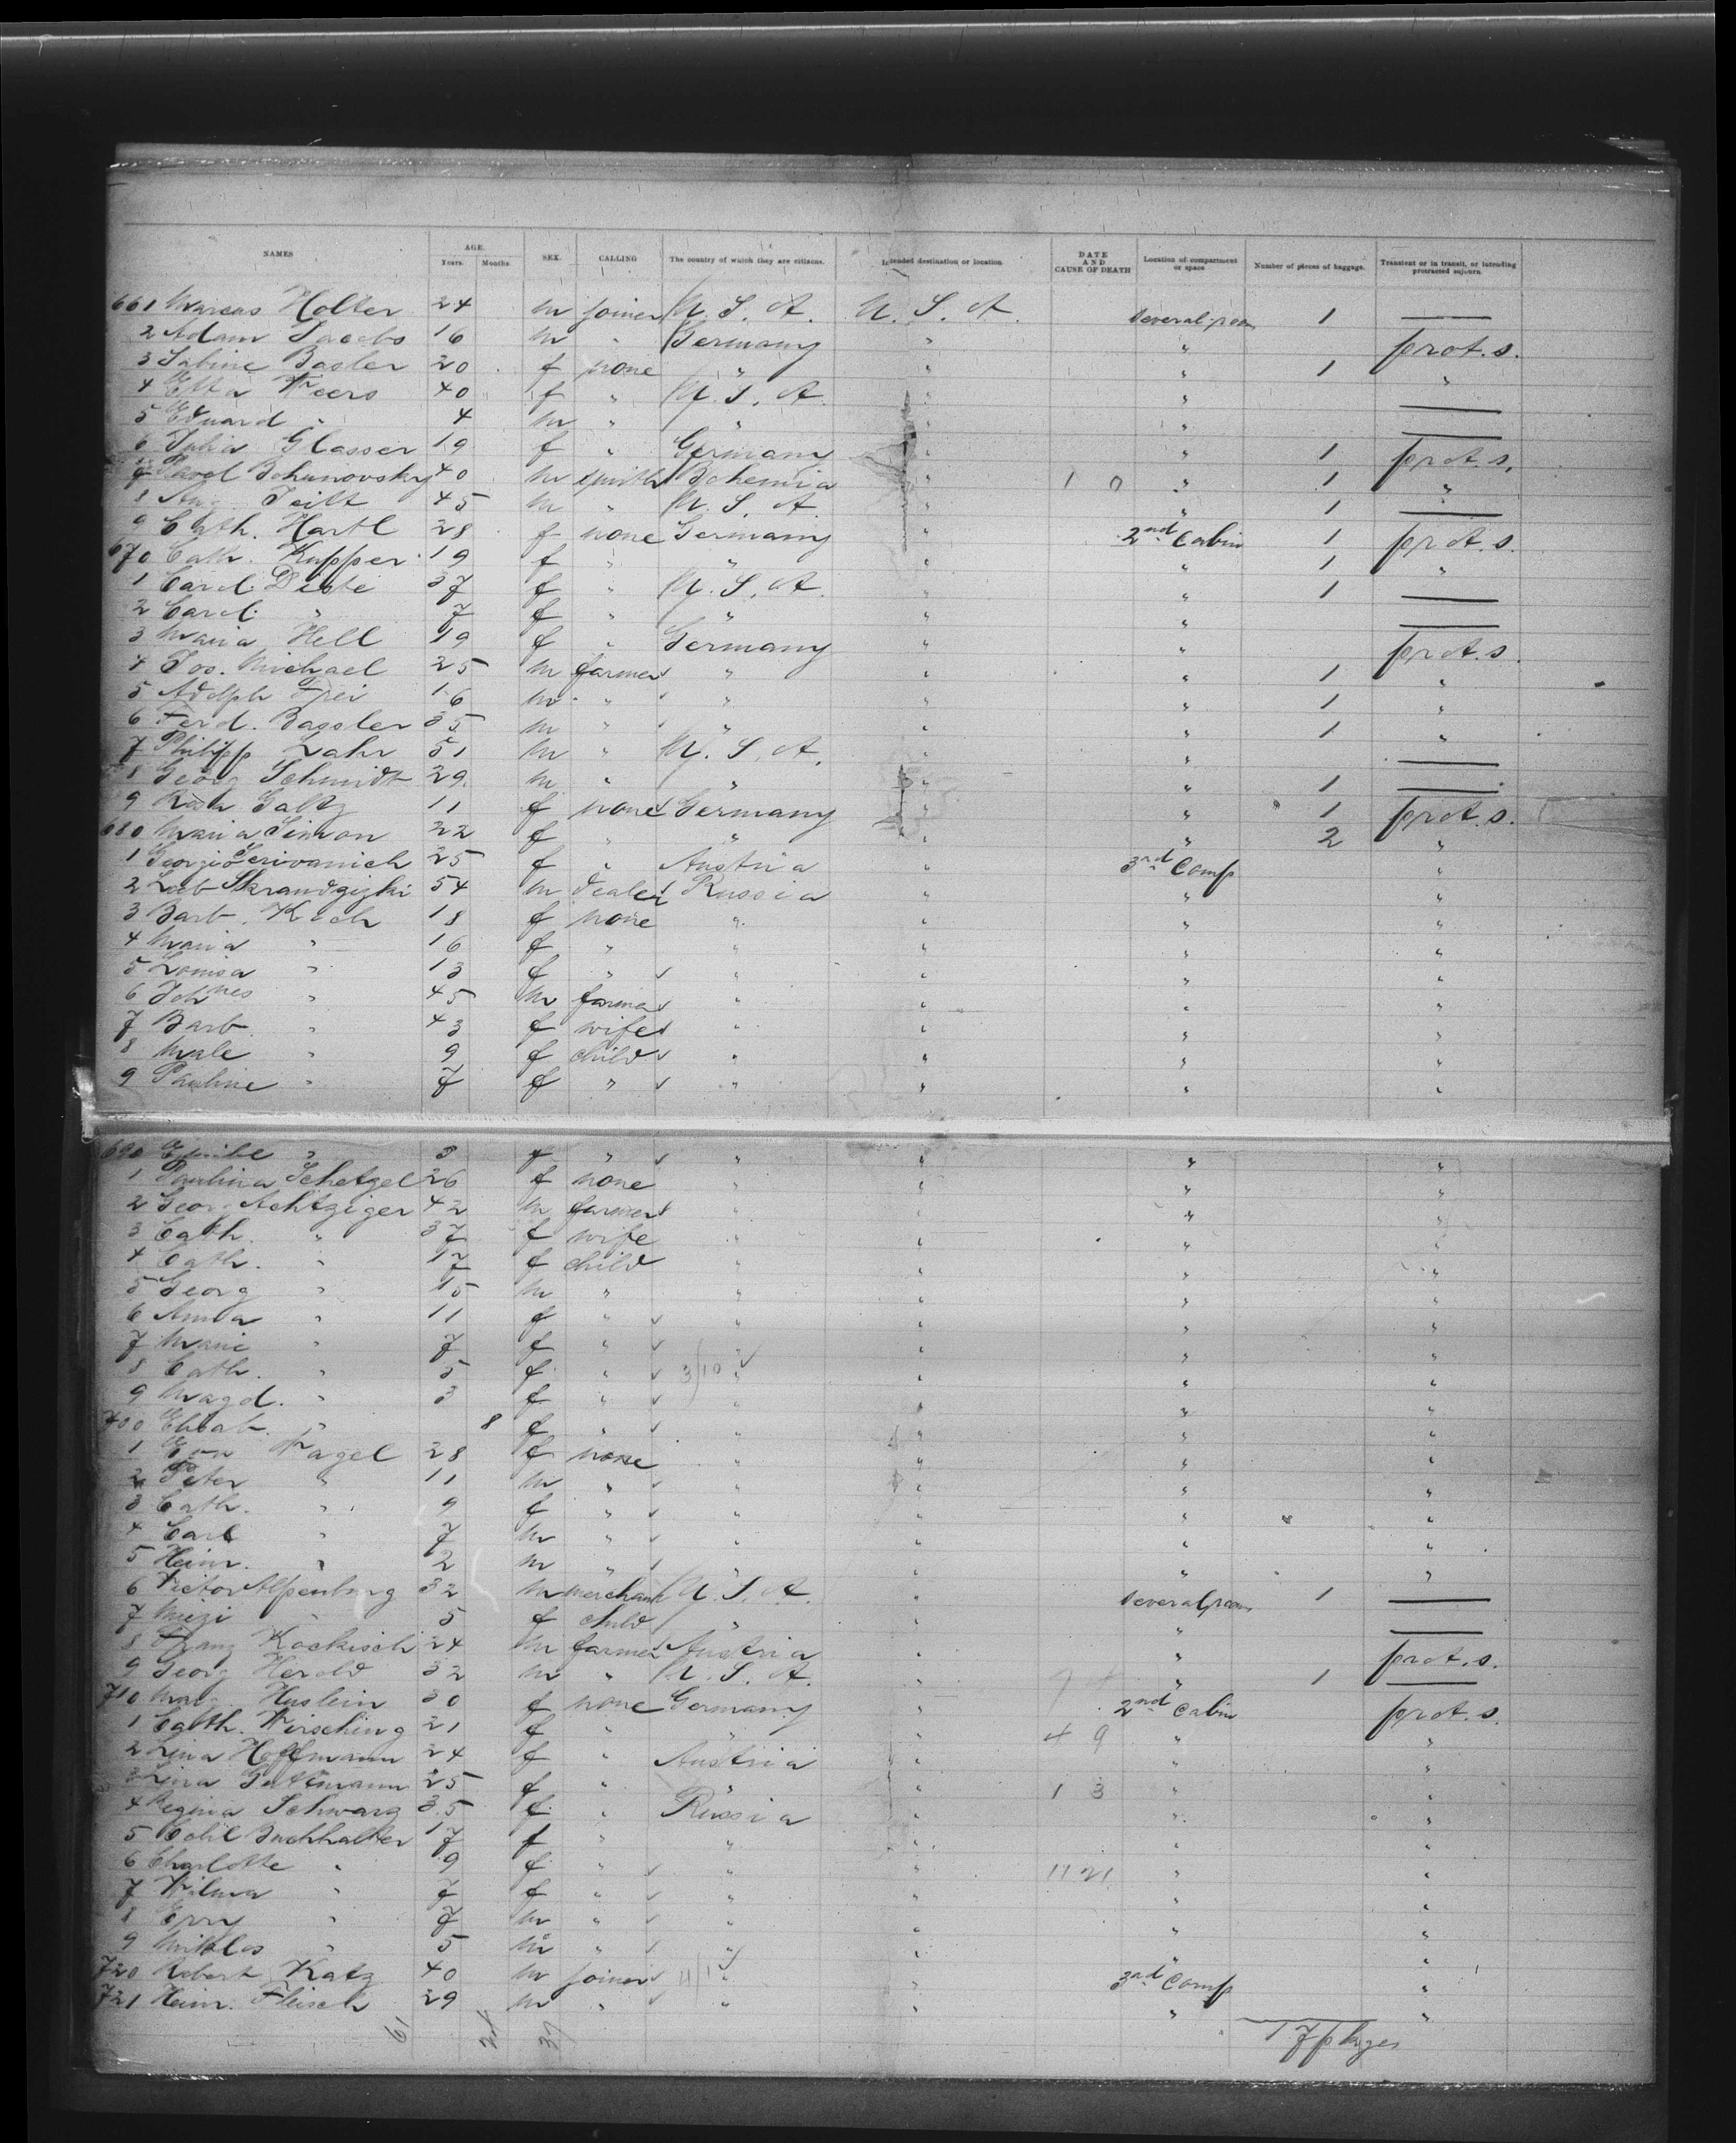 NAMES AGE. Years. Months. SEX. CALLING The country of which they are citizens. Intended destination or location DATE AND CAUSE OF DEATH Location of compartment or space Number of pieces of baggage. Transient or in transit, or intending protracted sojourn
661 Marcus Holter 24 m joiner U. S. A. U. S. A. several room 1 —
2 Adam Jacobs 16 m " Germany " " prot. s.
3 Sabine Basler 20 f none " " " 1 "
4 Etta Weers 40 f " U. S. A. " " —
5 Eduard " 4 m " " " " —
6 Julia Glasser 19 f " Germany " " 1 prot. s.
7 Bohunovsky 40 m smith Bohemia " 1 0 " 1 "
8 Aug. 45 m " U. S. A. " " 1 —
9 Cath. Hartl 28 f none Germany " 2nd Cabin 1 prot. s.
670 Cath. Kupper 19 f " " " " 1 "
1 Carol. Diste 37 f " U. S. A. " " 1 —
2 Carol. " 7 f " " " " —
3 Maria Hell 19 f " Germany " " prot. s.
4 Jos. Michael 25 m farmer " " " 1 "
5 Adolph Frei 16 m " " " " 1 "
6 Ferd. Bassler 35 m " " " " 1 "
7 Philipp Lahr 51 m " U. S. A. " " —
8 Georg Schmidt 29 m " " " " 1 —
9 Galtz 11 f none Germany " " 1 prot. s.
680 Maria Simon 22 f " " " " 2 "
1 Georgio Scrivanich 25 f " Austria " 3rd Comp "
2 Skrandzizki 54 m dealer Russia " " "
3 Barb. Koch 18 f none " " " "
4 Maria " 16 f " " " " "
5 Louisa " 13 f " " " " "
6 Johnes " 45 m farmer " " " "
7 Barb. " 43 f wife " " " "
8 Male " 9 f child " " " "
9 Pauline " 7 f " " " " "
690 " f " " " " "
1 Paulina Schetzel 26 f none " " " "
2 Georg Achtziger 42 m farmer " " " "
3 Cath. " 37 f wife " " " "
4 Cath. " 17 f child " " " "
5 Georg " 15 m " " " " "
6 Anna " 11 f " " " " "
7 Marie " 7 f " " " " "
8 Cath. " 5 f " 3/10 " " " "
9 Magd. " 3 f " " " " "
700 Elisab. " 8 f " " " " "
1 Eva Nagel 28 f none " " " "
2 Peter " 11 m " " " " "
3 Cath. " 9 f " " " " "
4 Carl " 7 m " " " " "
5 Heinr. " 2 m " " " " "
6 Victor Alpenburg 32 m merchant U. S. A. " several room 1 —
7 Mizi " 5 f child " " " —
8 Franz Kockisch 24 m farmer Austria " " prot. s.
9 Georg Herold 32 m " U. S. A. " " 1 —
710 Marg. Huslein 30 f none Germany " 2nd Cabin prot. s.
1 Cath. Wirsching 21 f " " " 4 9 " "
2 Lina Hoffmann 24 f " Austria " " "
3 Lina Guttmann 25 f " " " 1 3 " "
4 Regina Schwarz 35 f " Russia " " "
5 Buchhalter 17 f " " " " "
6 Charlotte " 9 f " " " 11 21 " "
7 Wilma " 7 f " " " " "
8 " 7 m " " " " "
9 Miklos " 5 m " " " " "
720 Robert Katz 40 m joiner " " 3rd Comp "
721 Heinr. Fleisch 29 m " " " " "
61 24 37 17 pkges